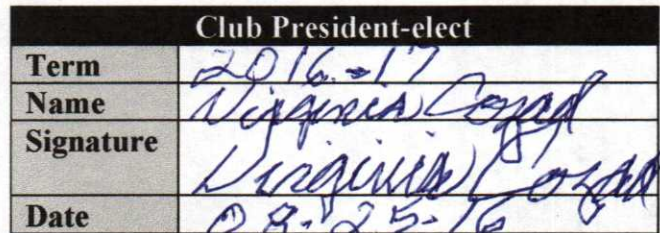 Club President-elect
Term 2016-17
Name Virginia Cozad
Signature Virginia Cozad
Date 08-25-16